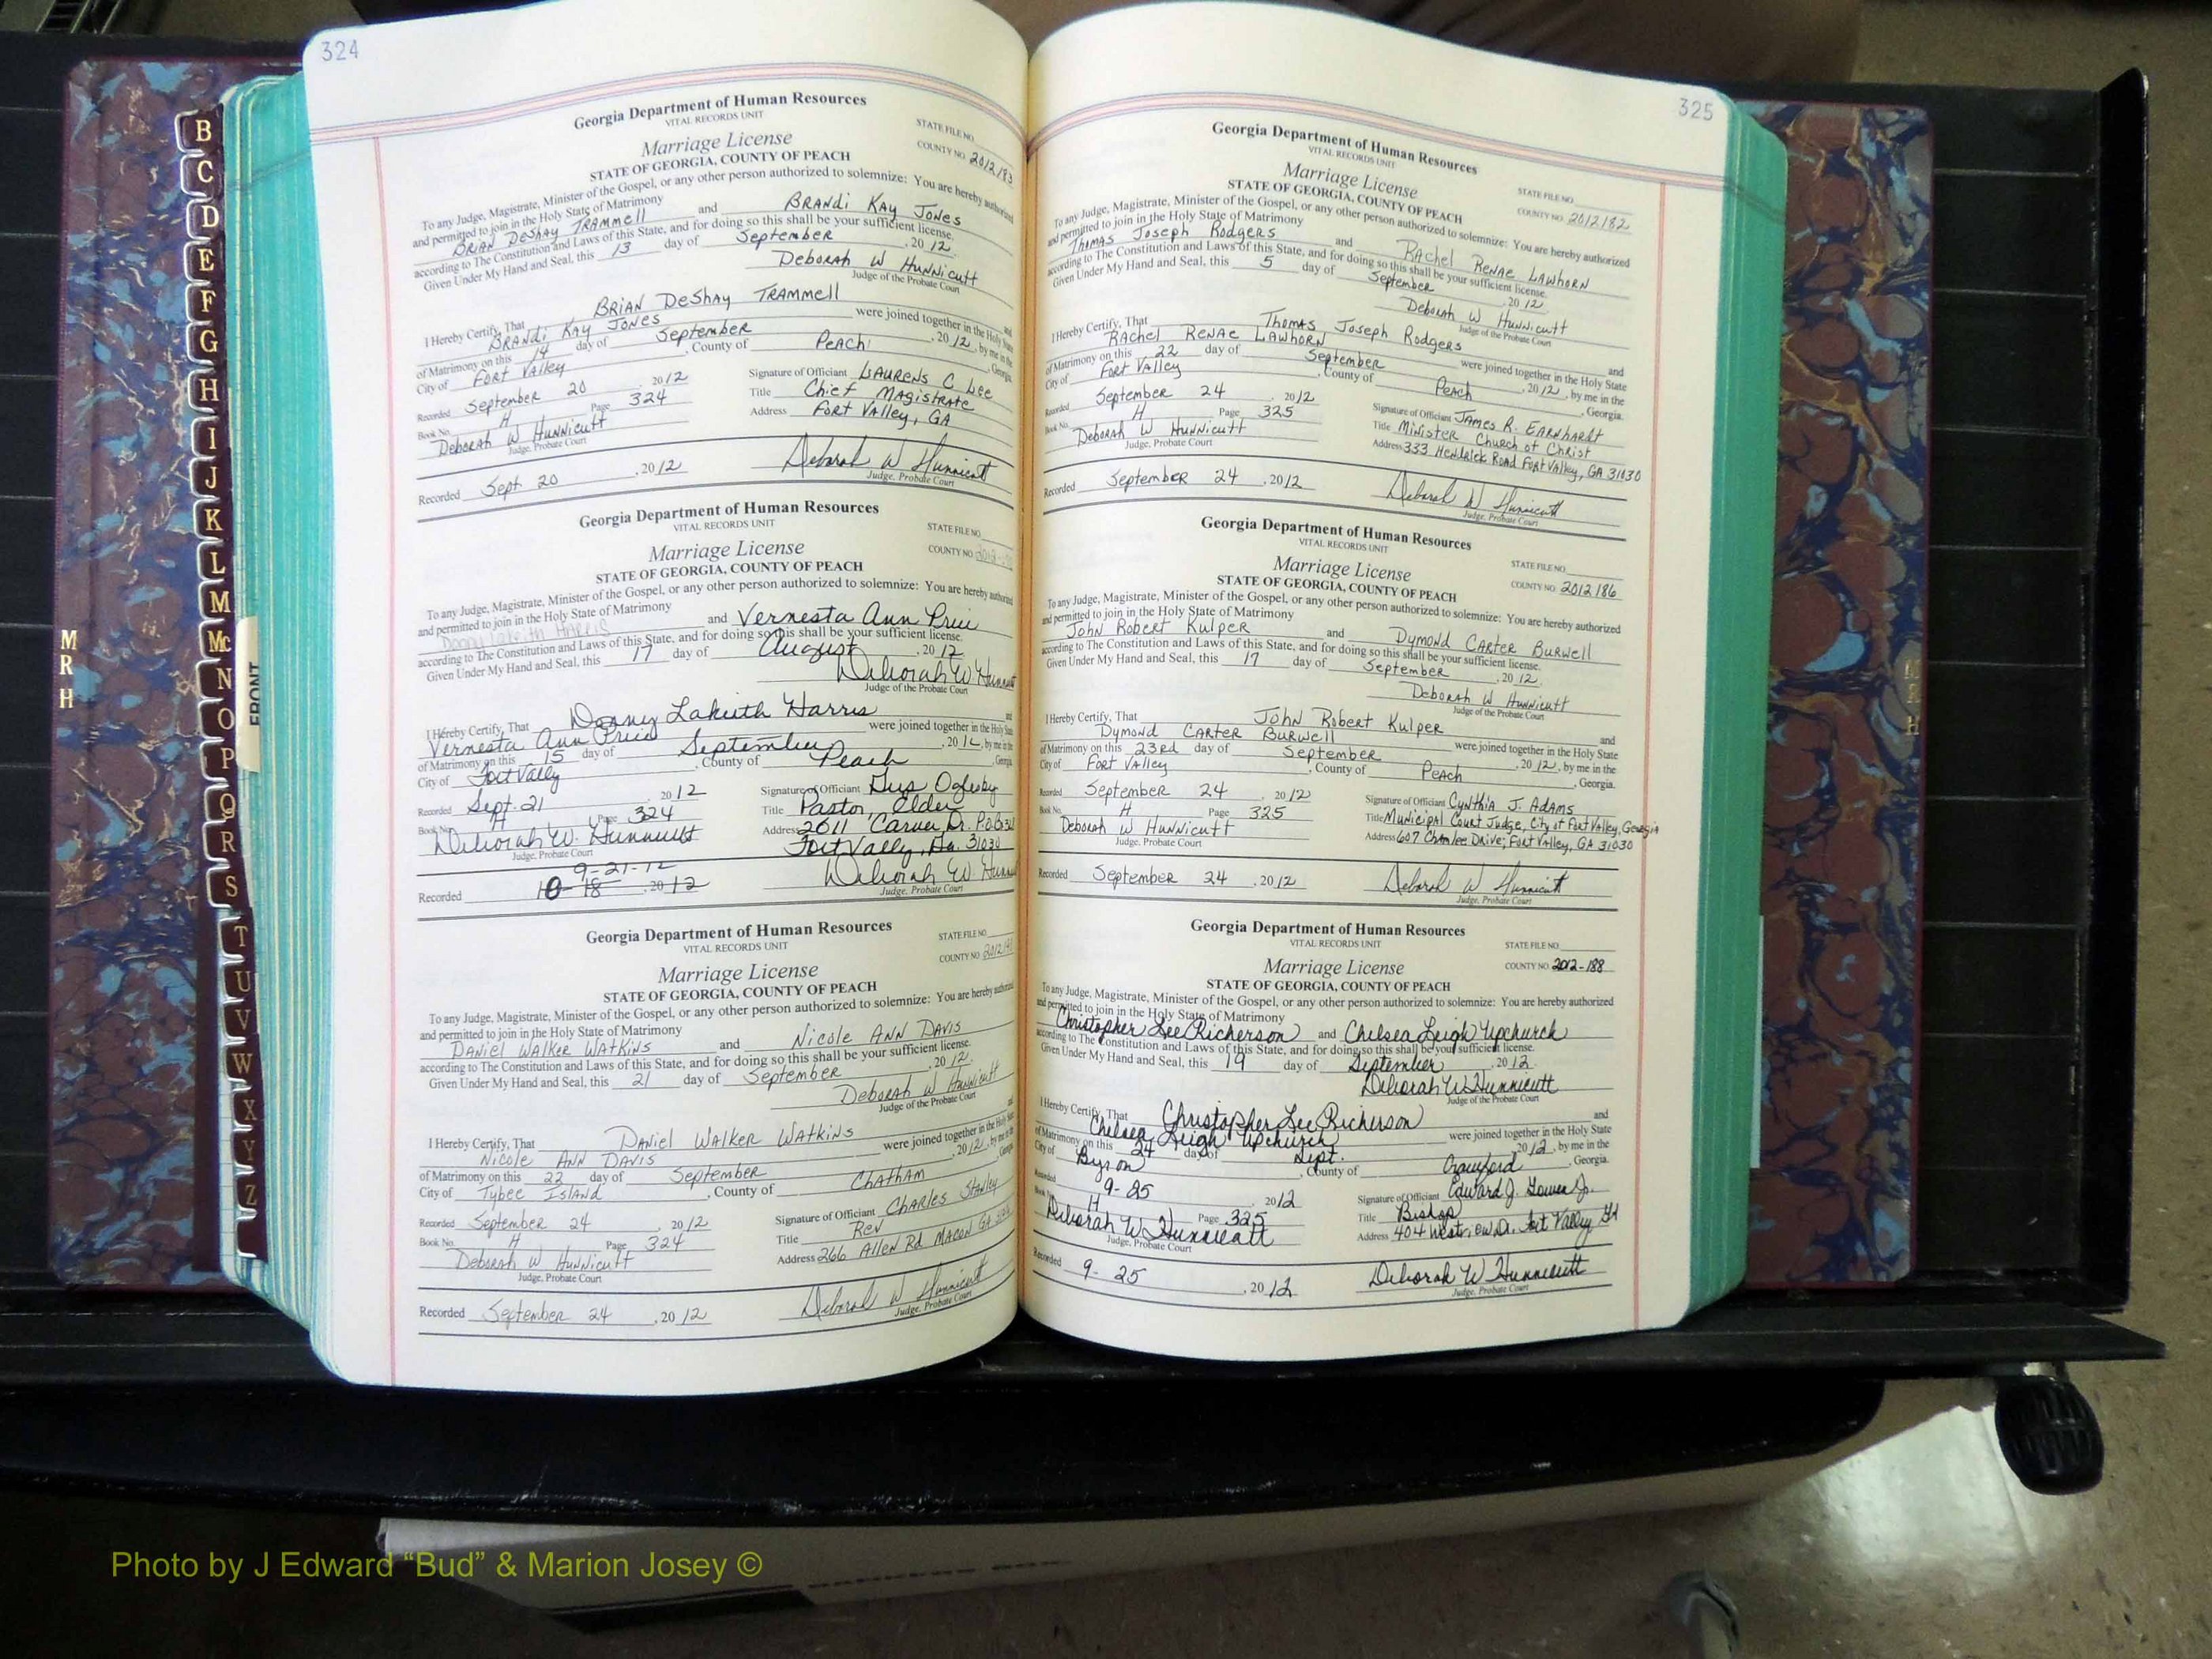 324
Georgia Department of Human Resources
VITAL RECORDS UNIT
STATE FILE NO.
Marriage License
COUNTY NO. 2012183
STATE OF GEORGIA, COUNTY OF PEACH
To any Judge, Magistrate, Minister of the Gospel, or any other person authorized to solemnize: You are hereby authorized
and permitted to join in the Holy State of Matrimony
BRIAN DeSHAY TRAMMELL and BRANDI KAY JONES
according to The Constitution and Laws of this State, and for doing so this shall be your sufficient license.
Given Under My Hand and Seal, this 13 day of September, 20 12.
Deborah W Hunnicutt
Judge of the Probate Court
I Hereby Certify, That BRIAN DeSHAY TRAMMELL and
BRANDI KAY JONES were joined together in the Holy State
of Matrimony on this 14 day of September, 20 12, by me in the
City of Fort Valley, County of Peach, Georgia.
Recorded September 20, 20 12
Signature of Officiant LAURENS C Lee
Book No. H Page 324
Title Chief Magistrate
Deborah W Hunnicutt
Address Fort Valley, GA
Judge, Probate Court
Recorded Sept. 20, 20 12
Deborah W Hunnicutt
Judge, Probate Court
Georgia Department of Human Resources
VITAL RECORDS UNIT
STATE FILE NO.
Marriage License
COUNTY NO.
STATE OF GEORGIA, COUNTY OF PEACH
To any Judge, Magistrate, Minister of the Gospel, or any other person authorized to solemnize: You are hereby authorized
and permitted to join in the Holy State of Matrimony
Donny Lakeith Harris and Vernesta Ann Price
according to The Constitution and Laws of this State, and for doing so this shall be your sufficient license.
Given Under My Hand and Seal, this 17 day of August, 20 12
Deborah W. Hunnicutt
Judge of the Probate Court
I Hereby Certify, That Donny Lakeith Harris and
Vernesta Ann Price were joined together in the Holy State
of Matrimony on this 15 day of September, 20 12, by me in the
City of Fort Valley, County of Peach, Georgia
Recorded Sept. 21, 20 12
Signature of Officiant Gus Oglesby
Book No. H Page 324
Title Pastor, Elder
Deborah W. Hunnicutt
Address 2611 Carver Dr. P.O.
Judge, Probate Court
Fort Valley, Ga. 31030
9-21-12
Recorded 10-18, 20 12
Deborah W. Hunnicutt
Judge, Probate Court
Georgia Department of Human Resources
VITAL RECORDS UNIT
STATE FILE NO.
COUNTY NO.
Marriage License
STATE OF GEORGIA, COUNTY OF PEACH
To any Judge, Magistrate, Minister of the Gospel, or any other person authorized to solemnize: You are hereby authorized
and permitted to join in the Holy State of Matrimony
DANIEL WALKER WATKINS and Nicole ANN DAVIS
according to The Constitution and Laws of this State, and for doing so this shall be your sufficient license.
Given Under My Hand and Seal, this 21 day of September, 20 12.
Deborah W Hunnicutt
Judge of the Probate Court
I Hereby Certify, That DANIEL WALKER WATKINS and
Nicole ANN DAVIS were joined together in the Holy State
of Matrimony on this 22 day of September, 20 12, by me in the
City of Tybee ISLAND, County of ChAtham Georgia
Recorded September 24, 20 12
Signature of Officiant CHARLES Stanley
Book No. H Page 324
Title Rev
Deborah W Hunnicutt
Address 266 Allen Rd MACON GA
Judge, Probate Court
Recorded September 24, 20 12
Deborah W Hunnicutt
Judge, Probate Court
325
Georgia Department of Human Resources
VITAL RECORDS UNIT
Marriage License
STATE FILE NO.
STATE OF GEORGIA, COUNTY OF PEACH
COUNTY NO. 2012182
To any Judge, Magistrate, Minister of the Gospel, or any other person authorized to solemnize: You are hereby authorized
and permitted to join in the Holy State of Matrimony
Thomas Joseph Rodgers and RAchel RENAE LAWhORN
according to The Constitution and Laws of this State, and for doing so this shall be your sufficient license.
Given Under My Hand and Seal, this 5 day of September, 20 12
Deborah W Hunnicutt
Judge of the Probate Court
I Hereby Certify, That Thomas Joseph Rodgers and
RAchel RENAE LAWhORN were joined together in the Holy State
of Matrimony on this 22 day of September, 20 12, by me in the
City of Fort Valley, County of Peach, Georgia.
Recorded September 24, 20 12
Signature of Officiant JAMES R. EARNhARdt
Book No. H Page 325
Title Minister Church of Christ
Deborah W Hunnicutt
Address 333 Hendrick Road Fort Valley, GA 31030
Judge, Probate Court
Recorded September 24, 20 12
Deborah W Hunnicutt
Judge, Probate Court
Georgia Department of Human Resources
VITAL RECORDS UNIT
Marriage License
STATE FILE NO.
STATE OF GEORGIA, COUNTY OF PEACH
COUNTY NO. 2012186
To any Judge, Magistrate, Minister of the Gospel, or any other person authorized to solemnize: You are hereby authorized
and permitted to join in the Holy State of Matrimony
John Robert Kulper and Dymond CARTER Burwell
according to The Constitution and Laws of this State, and for doing so this shall be your sufficient license.
Given Under My Hand and Seal, this 17 day of September, 20 12.
Deborah W Hunnicutt
Judge of the Probate Court
I Hereby Certify, That John Robert Kulper and
Dymond CARTER BURWell were joined together in the Holy State
of Matrimony on this 23rd day of September, 20 12, by me in the
City of Fort Valley, County of Peach, Georgia.
Recorded September 24, 20 12
Signature of Officiant CyNthiA J. ADAMS
Book No. H Page 325
Title Municipal Court Judge, City of Fort Valley, Georgia
Deborah W Hunnicutt
Address 607 Chamlee Drive; Fort Valley, GA 31030
Judge, Probate Court
Recorded September 24, 20 12
Deborah W Hunnicutt
Judge, Probate Court
Georgia Department of Human Resources
VITAL RECORDS UNIT
STATE FILE NO.
Marriage License
COUNTY NO. 2012-188
STATE OF GEORGIA, COUNTY OF PEACH
To any Judge, Magistrate, Minister of the Gospel, or any other person authorized to solemnize: You are hereby authorized
and permitted to join in the Holy State of Matrimony
Christopher Lee Richerson and Chelsea Leigh Upchurch
according to The Constitution and Laws of this State, and for doing so this shall be your sufficient license.
Given Under My Hand and Seal, this 19 day of September, 20 12.
Deborah W Hunnicutt
Judge of the Probate Court
I Hereby Certify, That Christopher Lee Richerson and
Chelsea Leigh Upchurch were joined together in the Holy State
of Matrimony on this 24 day of Sept., 20 12, by me in the
City of Byron, County of Crawford, Georgia.
Recorded 9-25, 20 12
Signature of Officiant Edward J. Jr.
Book No. H Page 325
Title Bishop
Deborah W Hunnicutt
Address 404 Dr. Fort Valley Ga
Judge, Probate Court
Recorded 9-25, 20 12
Deborah W Hunnicutt
Judge, Probate Court
B
C
D
E
F
G
H
I
J
K
L
M
Mc
N
O
P
Q
R
S
T
U
V
W
X
Y
Z
FRONT
M
R
H
M
R
H
Photo by J Edward “Bud” & Marion Josey ©